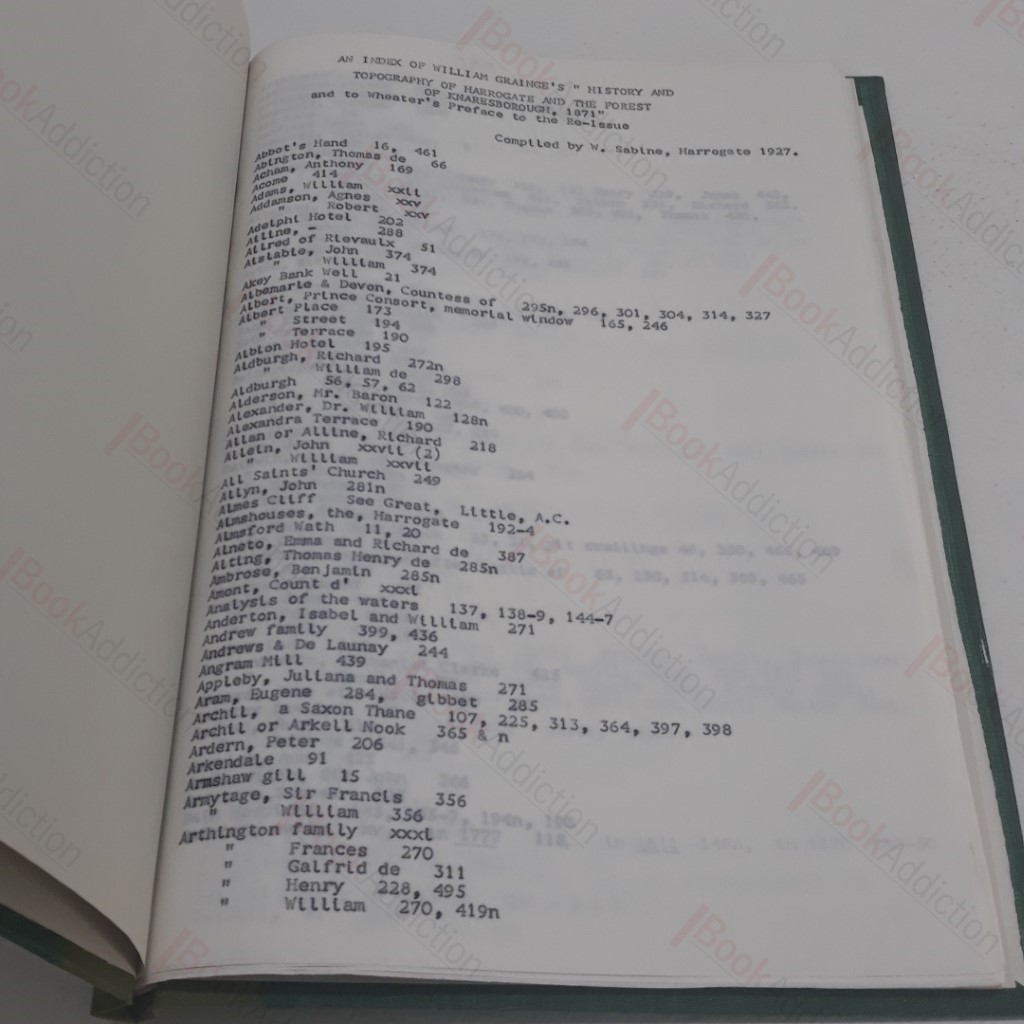 AN INDEX OF WILLIAM GRAINGE'S " HISTORY AND
TOPOGRAPHY OF HARROGATE AND THE FOREST
OF KNARESBOROUGH, 1871"
and to Wheater's Preface to the Re-issue
Compiled by W. Sabine, Harrogate 1927.
Abbot's Hand 16, 461
Abington, Thomas de 66
Acham, Anthony 169
Acome 414
Adams, William xxii
Addamson, Agnes xxv
" Robert xxv
Adelphi Hotel 202
Ailine, - 288
Ailred of Rievaulx 51
Aislabie, John 374
" William 374
Akey Bank Well 21
Albemarle & Devon, Countess of 295n, 296, 301, 304, 314, 327
Albert, Prince Consort, memorial window 165, 246
Albert Place 173
" Street 194
" Terrace 190
Albion Hotel 195
Aldburgh, Richard 272n
" William de 298
Aldburgh 56, 57, 62
Alderson, Mr. Baron 122
Alexander, Dr. William 128n
Alexandra Terrace 190
Allan or Alline, Richard 218
Allein, John xxvii (2)
" William xxvii
All Saints' Church 249
Allyn, John 281n
Almes Cliff See Great, Little, A.C.
Almshouses, the, Harrogate 192-4
Almsford Wath 11, 20
Alneto, Emma and Richard de 387
Alting, Thomas Henry de 285n
Ambrose, Benjamin 285n
Amont, Count d' xxxi
Analysis of the waters 137, 138-9, 144-7
Anderton, Isabel and William 271
Andrew family 399, 436
Andrews & De Launay 244
Angram Mill 439
Appleby, Juliana and Thomas 271
Aram, Eugene 284, gibbet 285
Archil, a Saxon Thane 107, 225, 313, 364, 397, 398
Archil or Arkell Nook 365 & n
Ardern, Peter 206
Arkendale 91
Armshaw gill 15
Armytage, Sir Francis 356
" William 356
Arthington family xxxi
" Frances 270
" Galfrid de 311
" Henry 228, 495
" William 270, 419n